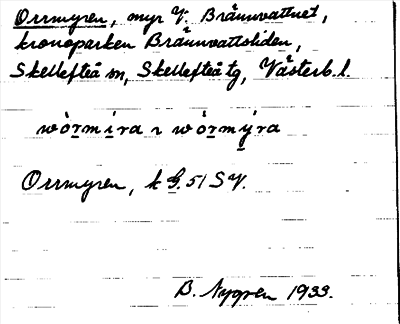 Orrmyren, myr V. Brännvattnet,
kronoparken Brännvattsliden,
Skellefteå sn, Skellefteå tg, Västerb. l.
wòrmíra ɿ wòrmýra
Orrmyren, k G. 51 SV.
B. Nygren 1933.